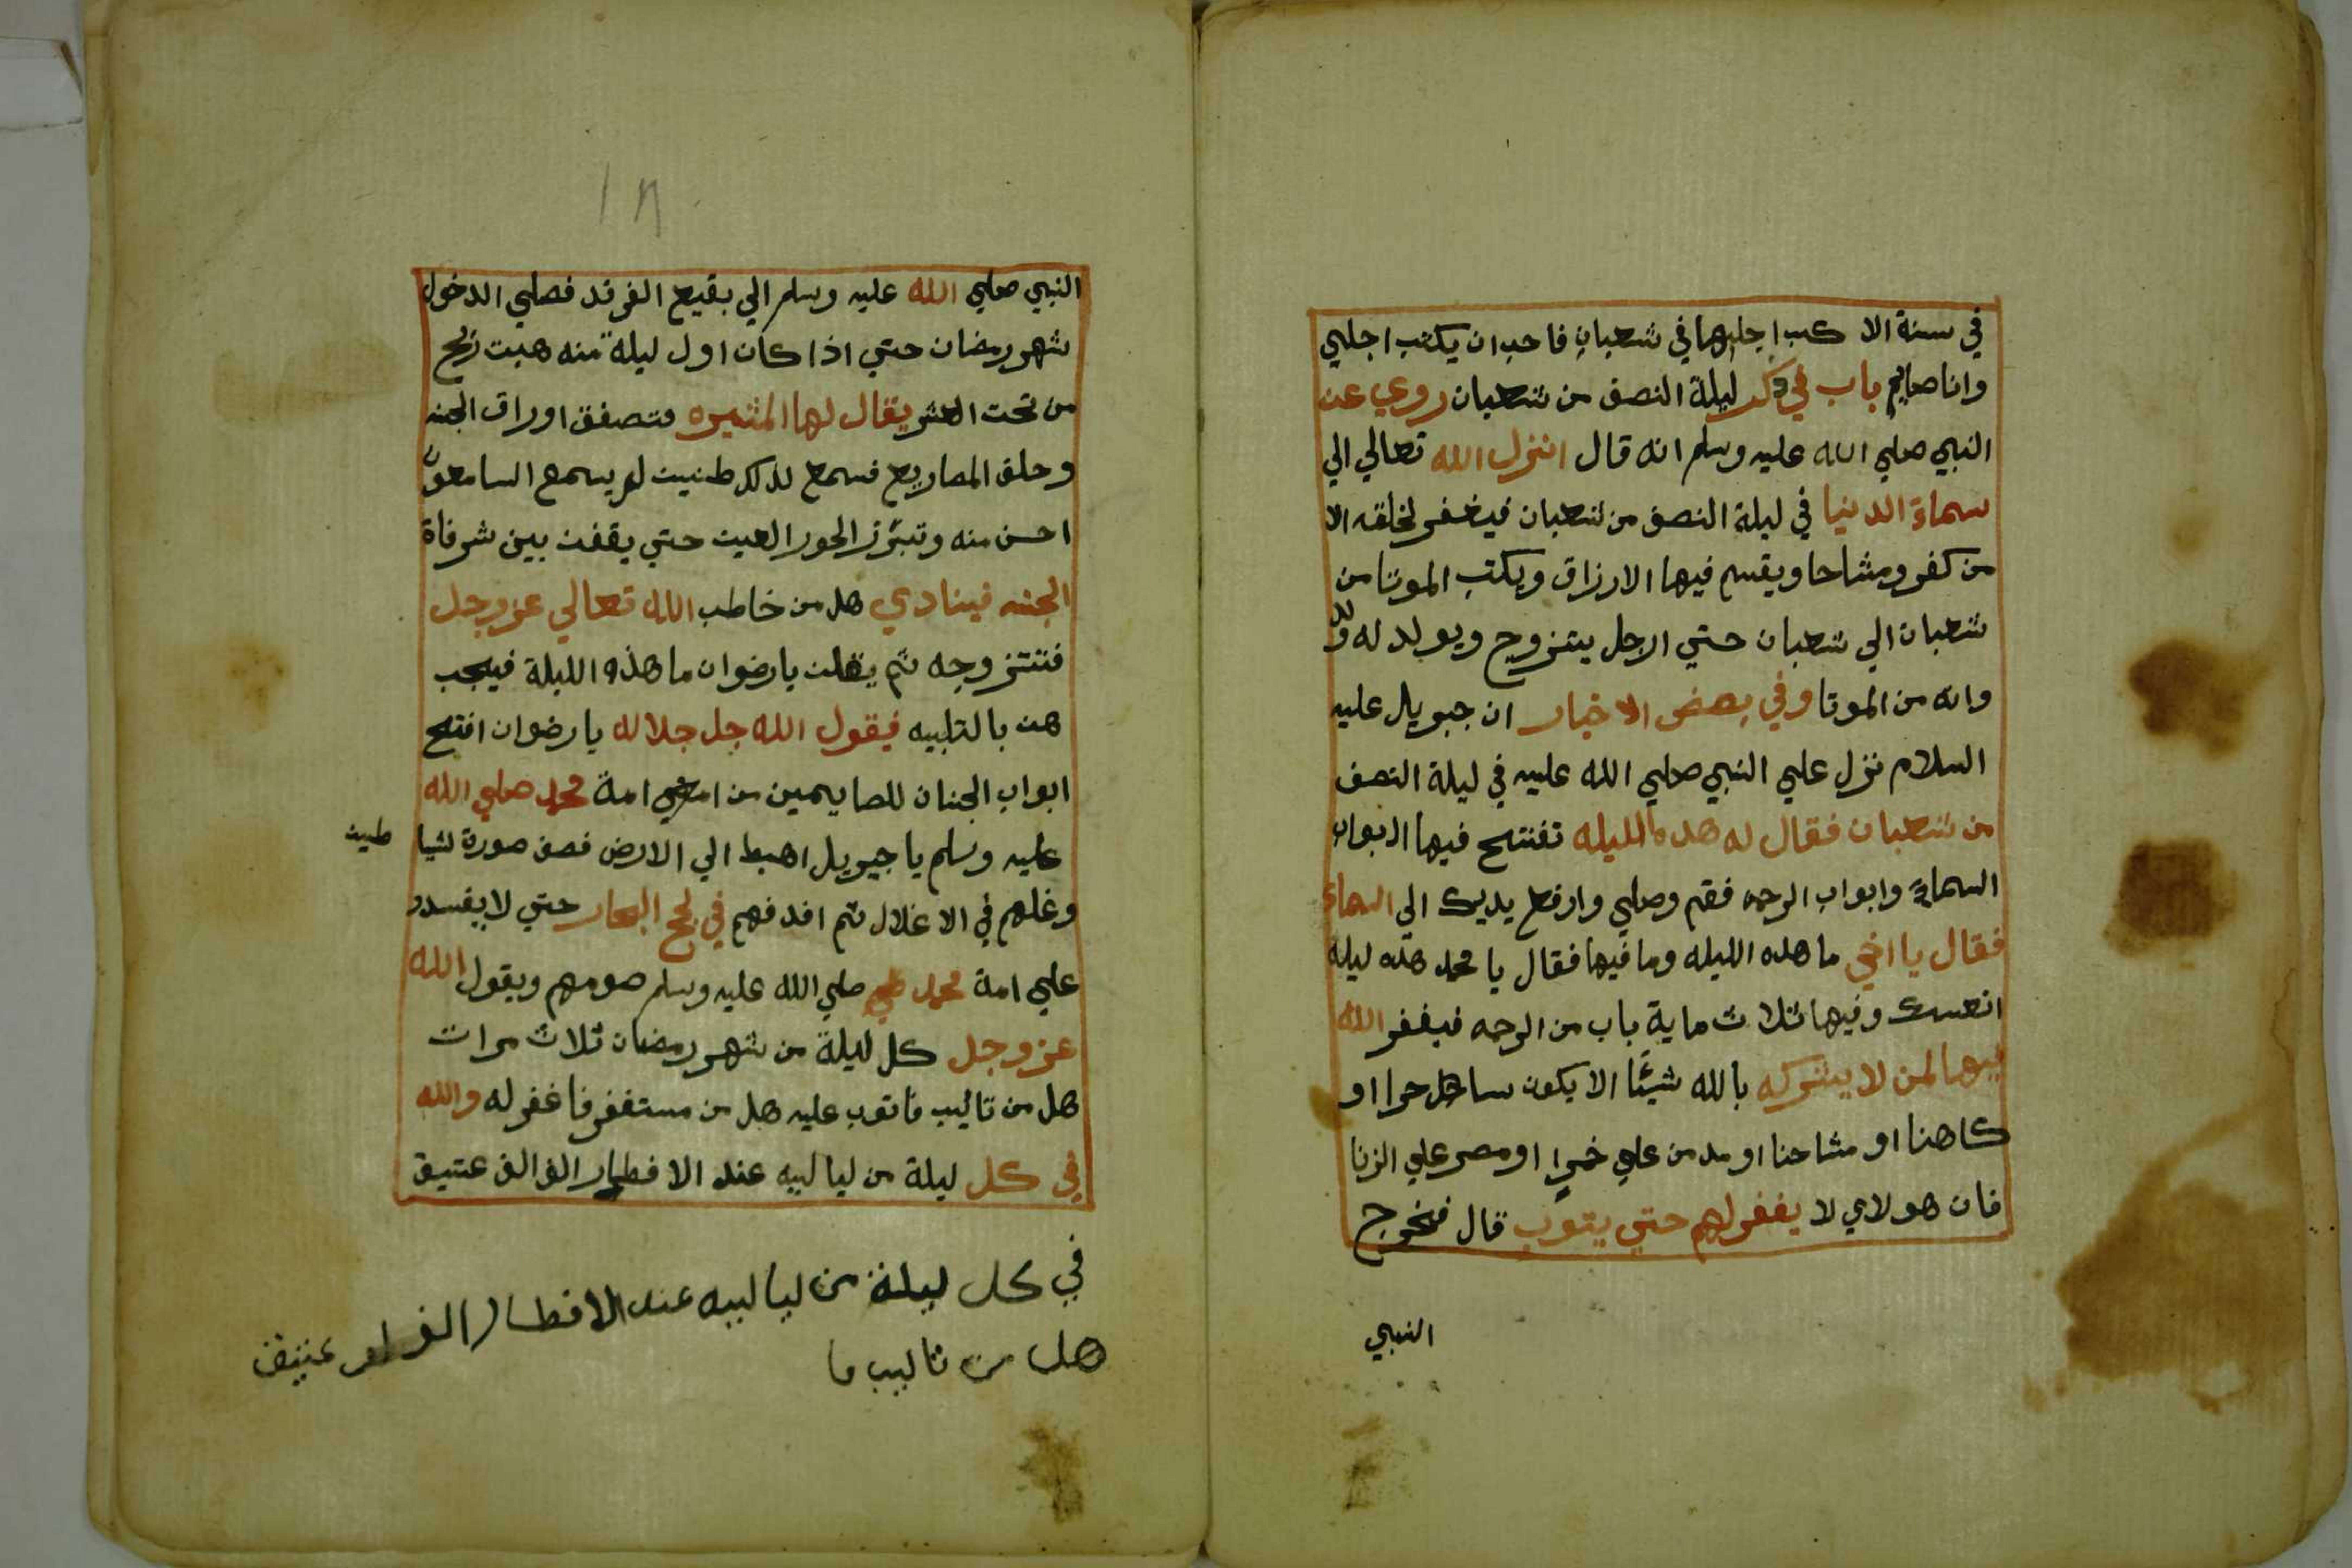 في سنة الا كتب اجلها في شعبان فاحب ان يكتب اجلي
وانا صايم باب في ذكر ليلة النصف من شعبان روي عن
النبي صلي الله عليه وسلم انه قال انزل الله تعالي الي
سماء الدنيا في ليلة النصف من شعبان فيغفر لخلقه الا
من كفر ومشاحا ويقسم فيها الارزاق ويكتب الموتا من
شعبان الي شعبان حتي الرجل يتزوج ويولد له ولد
وانه من الموتا وفي بعض الاخبار ان جبريل عليه
السلام نزل علي النبي صلي الله عليه في ليلة النصف
من شعبان فقال له هده الليله تفتتح فيها ابواب
السماء وابواب الرحمه فقم وصلي وارفع يديك الي السماء
فقال يا اخي ما هده الليله وما فيها فقال يا محمد هذه ليلة
وفيها ثلاث ماية باب من الرحمه فيغفر الله
فيها لمن لا يشرك بالله شيئا الا يكون ساحرا او
كاهنا او مشاحنا او مدمن علي خمرا او مصر علي الزنا
فان هولاي لا يغفر لهم حتي يتوب قال فخرج
النبي
١٨
النبي صلي الله عليه وسلم الي بقيع الغرقد فصلي الدخول
شهر رمضان حتي اذا كان اول ليلة منه هبت ريح
من تحت العرش يقال لها المثيره فتصفق اوراق الجنه
وحلق المصاريع فسمع لذلك طنين لم يسمع السامعون
احسن منه وتبرز الحور العين حتي يقفن بين شرفاة
الجنه فينادي هل من خاطب الله تعالي عز وجل
فتتزوجه ثم يقلن يا رضوان ما هذه الليلة فيجب
هن بالتلبيه فيقول الله جل جلاله يا رضوان افتح
ابواب الجنان للصايمين من امة محمد صلي الله
عليه وسلم يا جبريل اهبط الي الارض فصف صورة لشيا طين
وغلهم في الاغلال ثم اقدفهم في لجج البحار حتي لا يفسدو
علي امة محمد صلي الله عليه وسلم صومهم ويقول الله
عز وجل كل ليلة من شهر رمضان ثلاث مرات
هل من تاليب فاتوب عليه هل من مستغفر فاغفر له والله
في كل ليلة من لياليه عند الافطار الف الف عتيق
في كل ليلة من لياليه عند الافطار الف الف عتيق
هل من تاليب فا